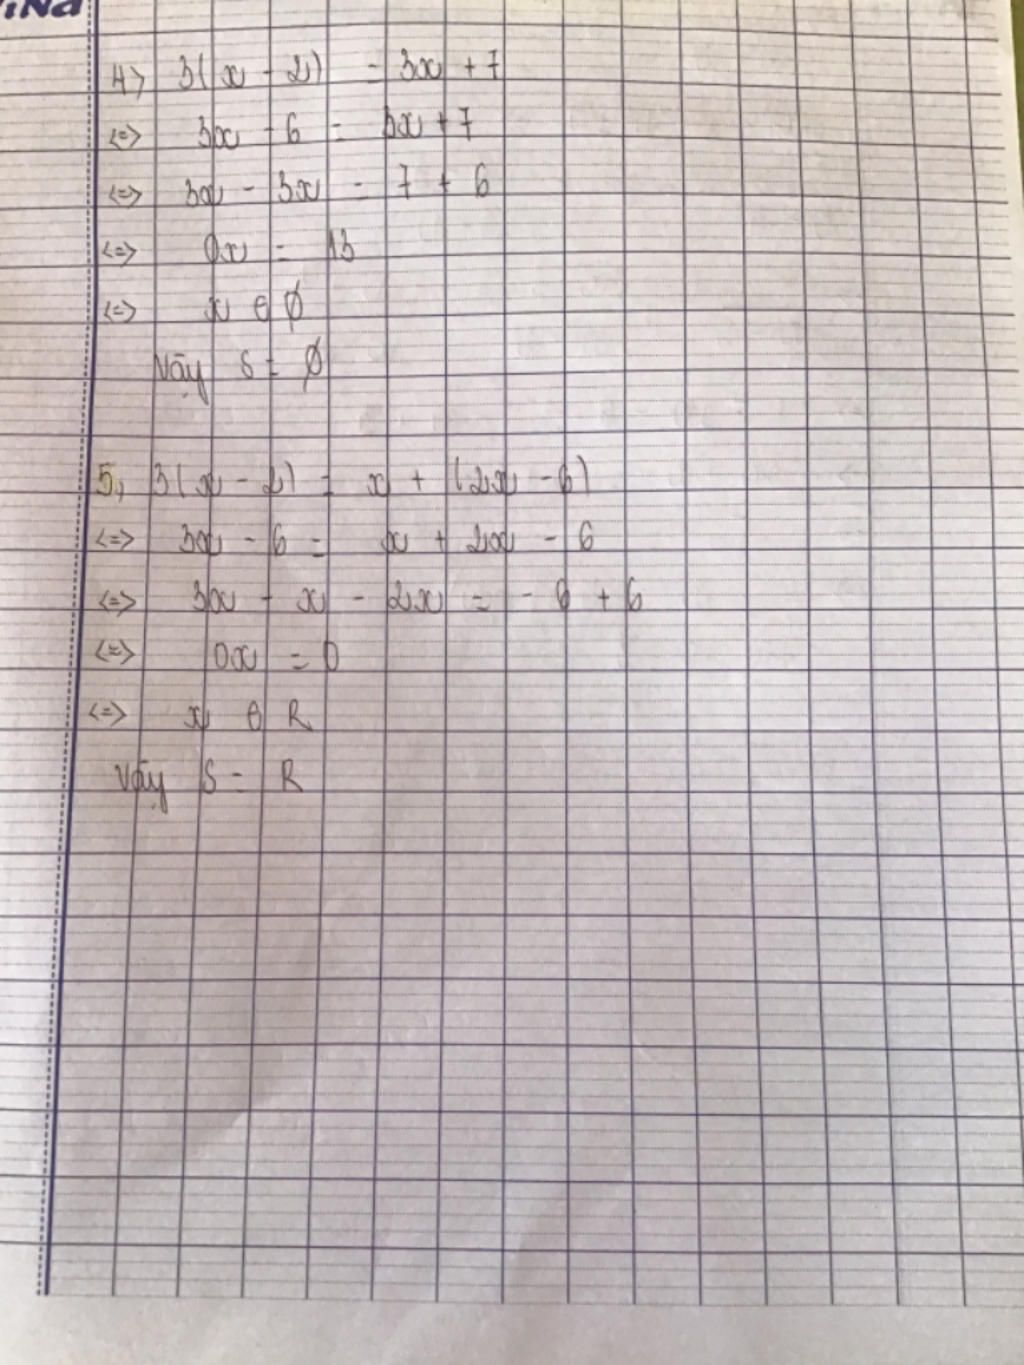 ViNa
4> 3(x - 2) = 3x + 7
<=> 3x - 6 = 3x + 7
<=> 3x - 3x = 7 + 6
<=> 0x = 13
<=> x ∈ ∅
Vậy S = ∅
5, 3(x - 2) = x + (2x - 6)
<=> 3x - 6 = x + 2x - 6
<=> 3x - x - 2x = - 6 + 6
<=> 0x = 0
<=> x ∈ R
Vậy S = R